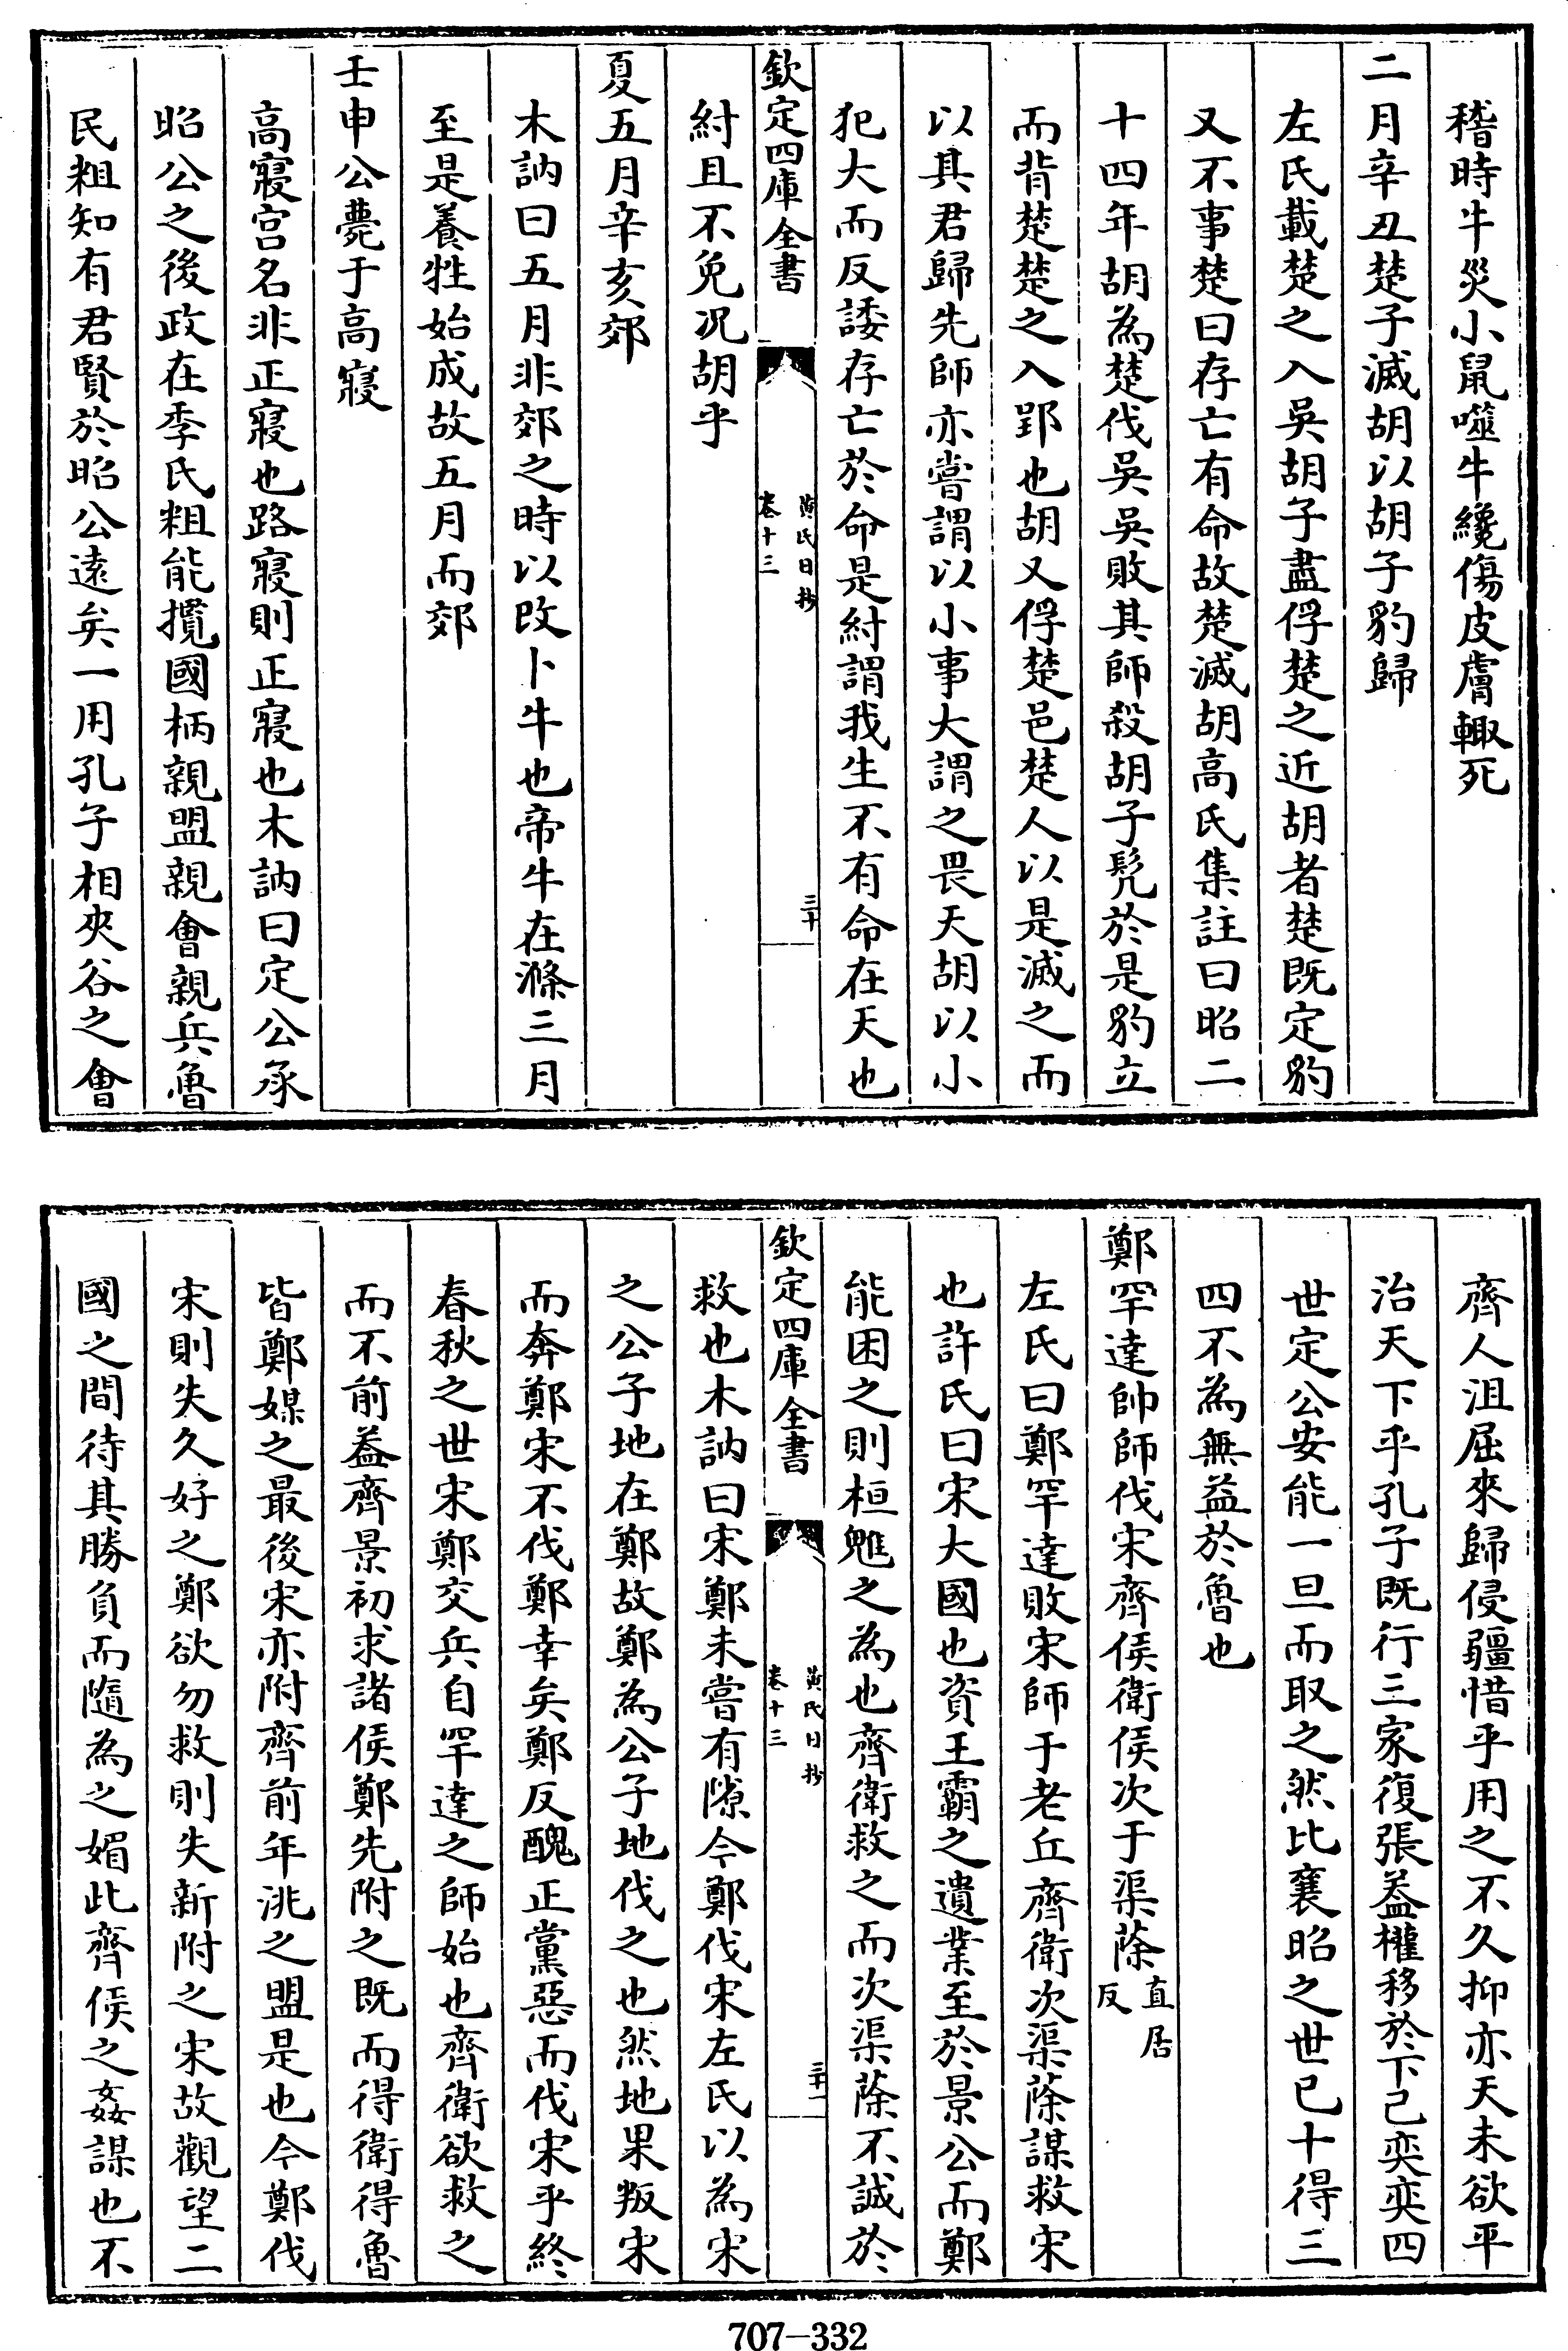 稽時牛災小鼠噬牛纔傷皮膚輙死
二月辛丑楚子滅胡以胡子豹歸
左氏載楚之入吳胡子盡俘楚之近胡者楚既定豹
又不事楚曰存亡有命故楚滅胡高氏集註曰昭二
十四年胡為楚伐吳吳敗其師殺胡子髠於是豹立
而背楚楚之入郢也胡又俘楚邑楚人以是滅之而
以其君歸先師亦嘗謂以小事大謂之畏天胡以小
犯大而反諉存亡於命是紂謂我生不有命在天也
欽定四庫全書
黄氏日抄
卷十三
三十
紂且不免况胡乎
夏五月辛亥郊
木訥曰五月非郊之時以改卜牛也帝牛在滌三月
至是養牲始成故五月而郊
壬申公薨于高寢
高寢宫名非正寢也路寢則正寢也木訥曰定公承
昭公之後政在季氏粗能攬國柄親盟親會親兵魯
民粗知有君賢於昭公遠矣一用孔子相夾谷之會
齊人沮屈來歸侵疆惜乎用之不久抑亦天未欲平
治天下乎孔子既行三家復張葢權移於下已奕奕四
世定公安能一旦而取之然比襄昭之世已十得三
四不為無益於魯也
鄭罕達帥師伐宋齊侯衛侯次于渠蒢直居反
左氏曰鄭罕達敗宋師于老丘齊衛次渠蒢謀救宋
也許氏曰宋大國也資王霸之遺業至於景公而鄭
能困之則桓魋之為也齊衛救之而次渠蒢不誠於
欽定四庫全書
黄氏日抄
卷十三
三十一
救也木訥曰宋鄭未嘗有隙今鄭伐宋左氏以為宋
之公子地在鄭故鄭為公子地伐之也然地果叛宋
而奔鄭宋不伐鄭鄭幸矣鄭反醜正黨惡而伐宋乎終
春秋之世宋鄭交兵自罕達之師始也齊衛欲救之
而不前葢齊景初求諸侯鄭先附之既而得衛得魯
皆鄭媒之最後宋亦附齊前年洮之盟是也今鄭伐
宋則失久好之鄭欲勿救則失新附之宋故觀望二
國之間待其勝負而隨為之媚此齊侯之姦謀也不
707-332